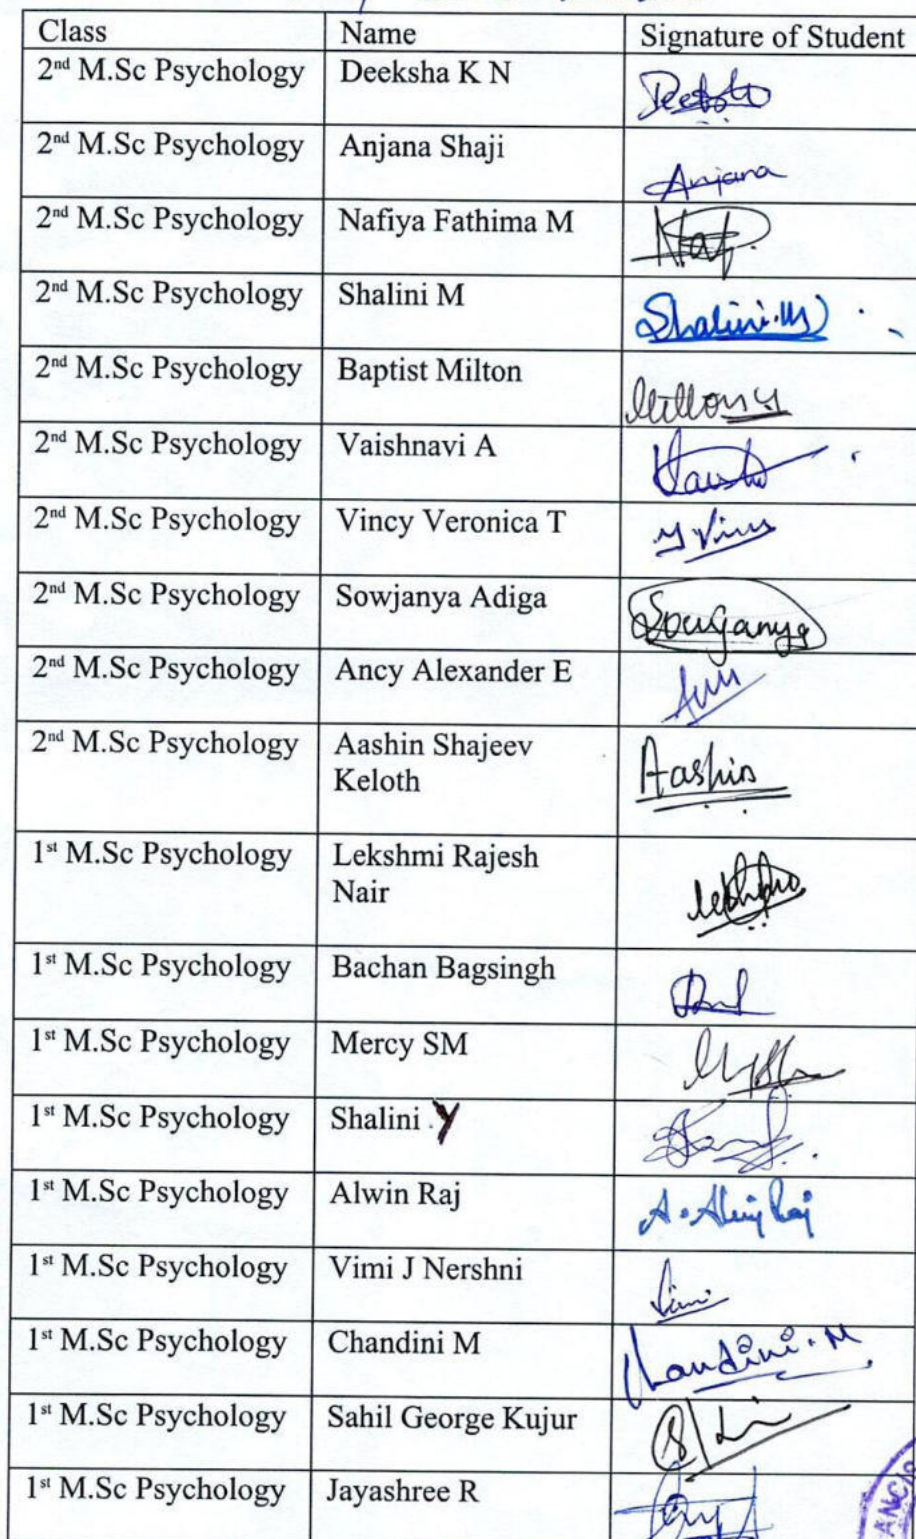 Class Name Signature of Student
2nd M.Sc Psychology Deeksha K N Deeksha
2nd M.Sc Psychology Anjana Shaji Anjana
2nd M.Sc Psychology Nafiya Fathima M
2nd M.Sc Psychology Shalini M Shalini.M
2nd M.Sc Psychology Baptist Milton
2nd M.Sc Psychology Vaishnavi A
2nd M.Sc Psychology Vincy Veronica T
2nd M.Sc Psychology Sowjanya Adiga Sowjanya
2nd M.Sc Psychology Ancy Alexander E
2nd M.Sc Psychology Aashin Shajeev Aashin
Keloth
1st M.Sc Psychology Lekshmi Rajesh
Nair
1st M.Sc Psychology Bachan Bagsingh
1st M.Sc Psychology Mercy SM
1st M.Sc Psychology Shalini .Y
1st M.Sc Psychology Alwin Raj
1st M.Sc Psychology Vimi J Nershni
1st M.Sc Psychology Chandini M Chandini.M
1st M.Sc Psychology Sahil George Kujur
1st M.Sc Psychology Jayashree R